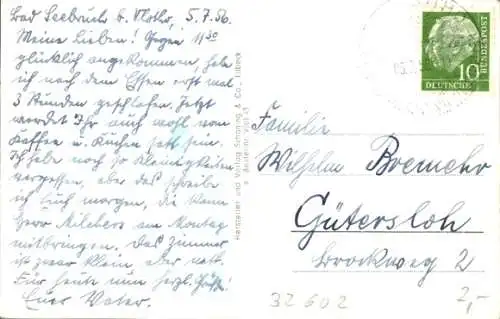 Bad Seebruch b. Vlotho, 5.7.56.
Meine Lieben! Gegen 11³⁰
glücklich angekommen, habe
ich nach dem Essen erst mal
3 Stunden geschlafen. Jetzt
werdet Ihr auch wohl vom
Kaffee u. Kuchen satt sein.
Ich habe noch so Kleinigkeiten
vergessen, aber das schreibe
ich Euch morgen, die kann
Herr Milchers am Montag
mitbringen. Das Zimmer
ist zwar klein, aber nett.
Für heute nun herzl. Grüße!
Euer Vater.
Hersteller und Verlag Schöning & Co., Lübeck
10
DEUTSCHE
BUNDESPOST
Familie
Wilhelm Bremehr
Gütersloh
Brockweg 2
32602
2,-